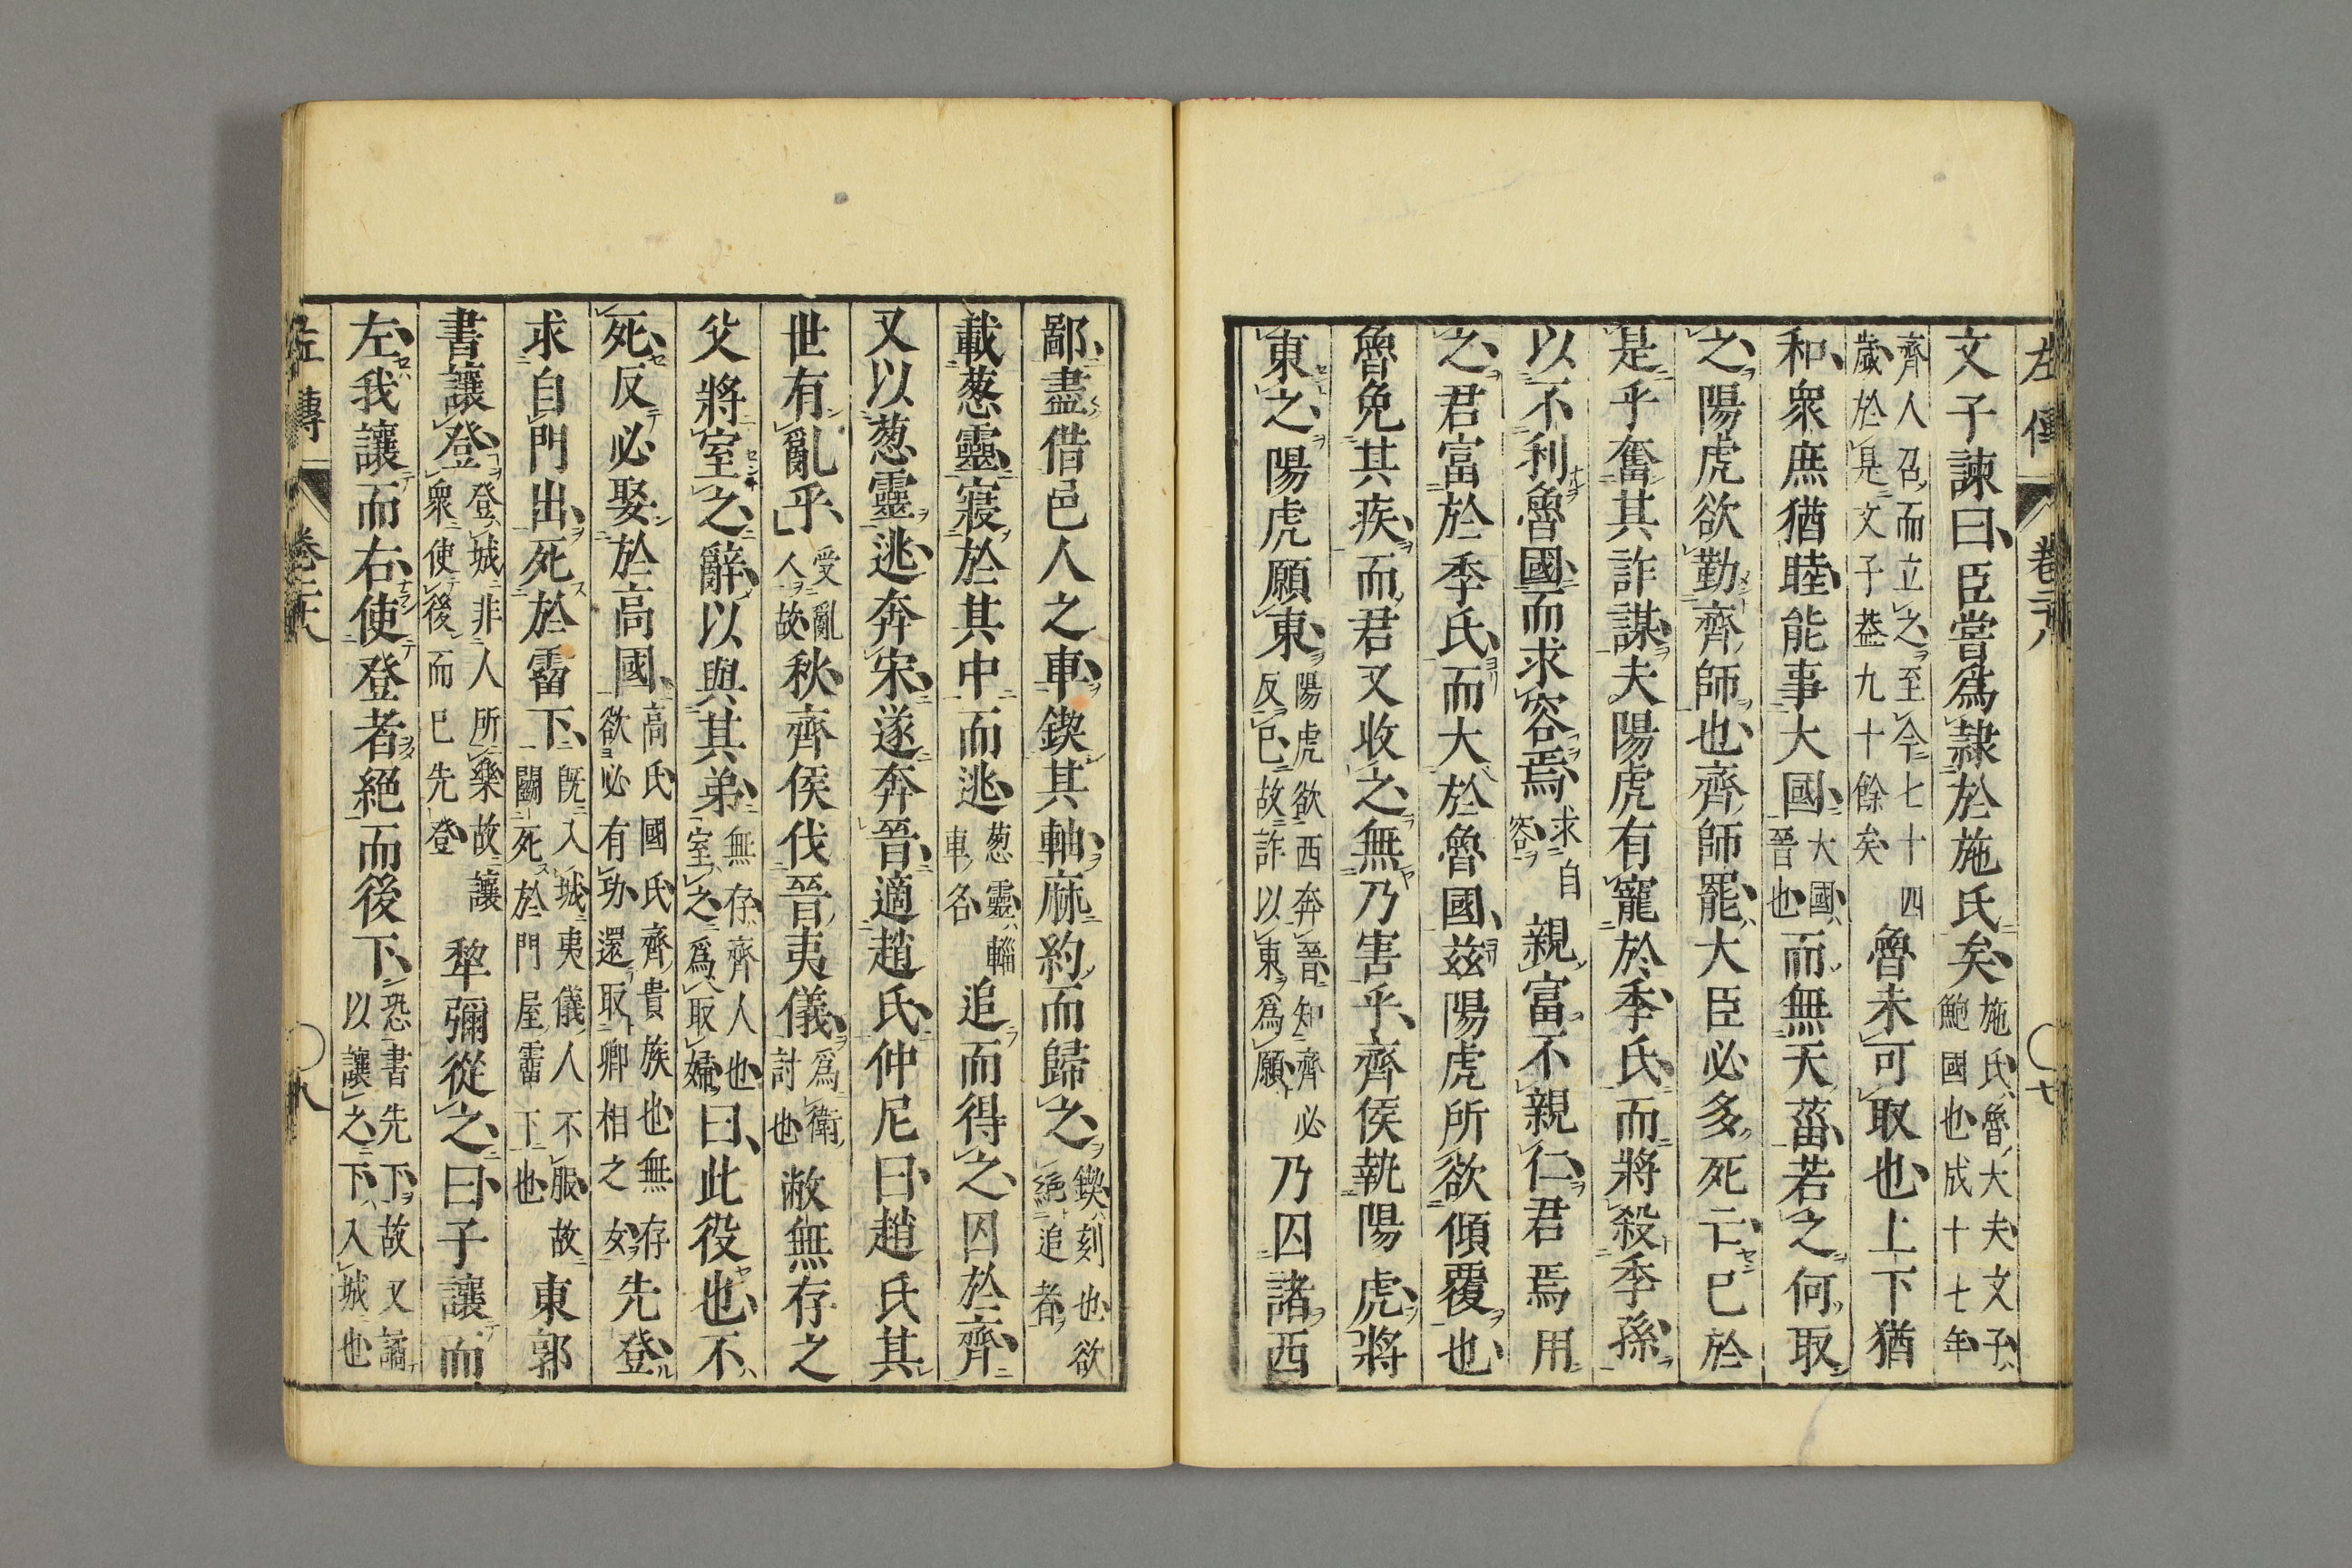 左傳 卷二十八 ○七
文子諫曰臣嘗爲隸於施氏矣施氏魯大夫文子鮑國也成十七年
齊人召而立之至今七十四歲於是文子葢九十餘矣魯未可取也上下猶
和衆庶猶睦能事大國大國晉也而無天菑若之何取
之陽虎欲勤齊師也齊師罷大臣必多死亡已於
是乎奮其詐謀夫陽虎有寵於季氏而將殺季孫
以不利魯國而求容焉求自容親富不親仁君焉用
之君富於季氏而大於魯國茲陽虎所欲傾覆也
魯免其疾而君又收之無乃害乎齊侯執陽虎將
東之陽虎願東陽虎欲西奔晉知齊必反已故詐以東爲願乃囚諸西
鄙盡借邑人之車鍥其軸麻約而歸之鍥刻也欲絕追者
載葱靈寢於其中而逃葱靈輜車名追而得之囚於齊
又以葱靈逃奔宋遂奔晉適趙氏仲尼曰趙氏其
世有亂乎受亂人故秋齊侯伐晉夷儀爲衛討也敝無存之
父將室之辭以與其弟無存齊人也室之爲取婦曰此役也不
死反必娶於高國高氏國氏齊貴族也無存欲必有功還取卿相之女先登
求自門出死於霤下既入城夷儀人不服故鬬死於門屋霤下也東郭
書讓登登城非人所樂故讓衆使後而已先登犂彌從之曰子讓而
左我讓而右使登者絕而後下恐書先下故又譎以讓之下入城也
左傳 卷二十八 ○八